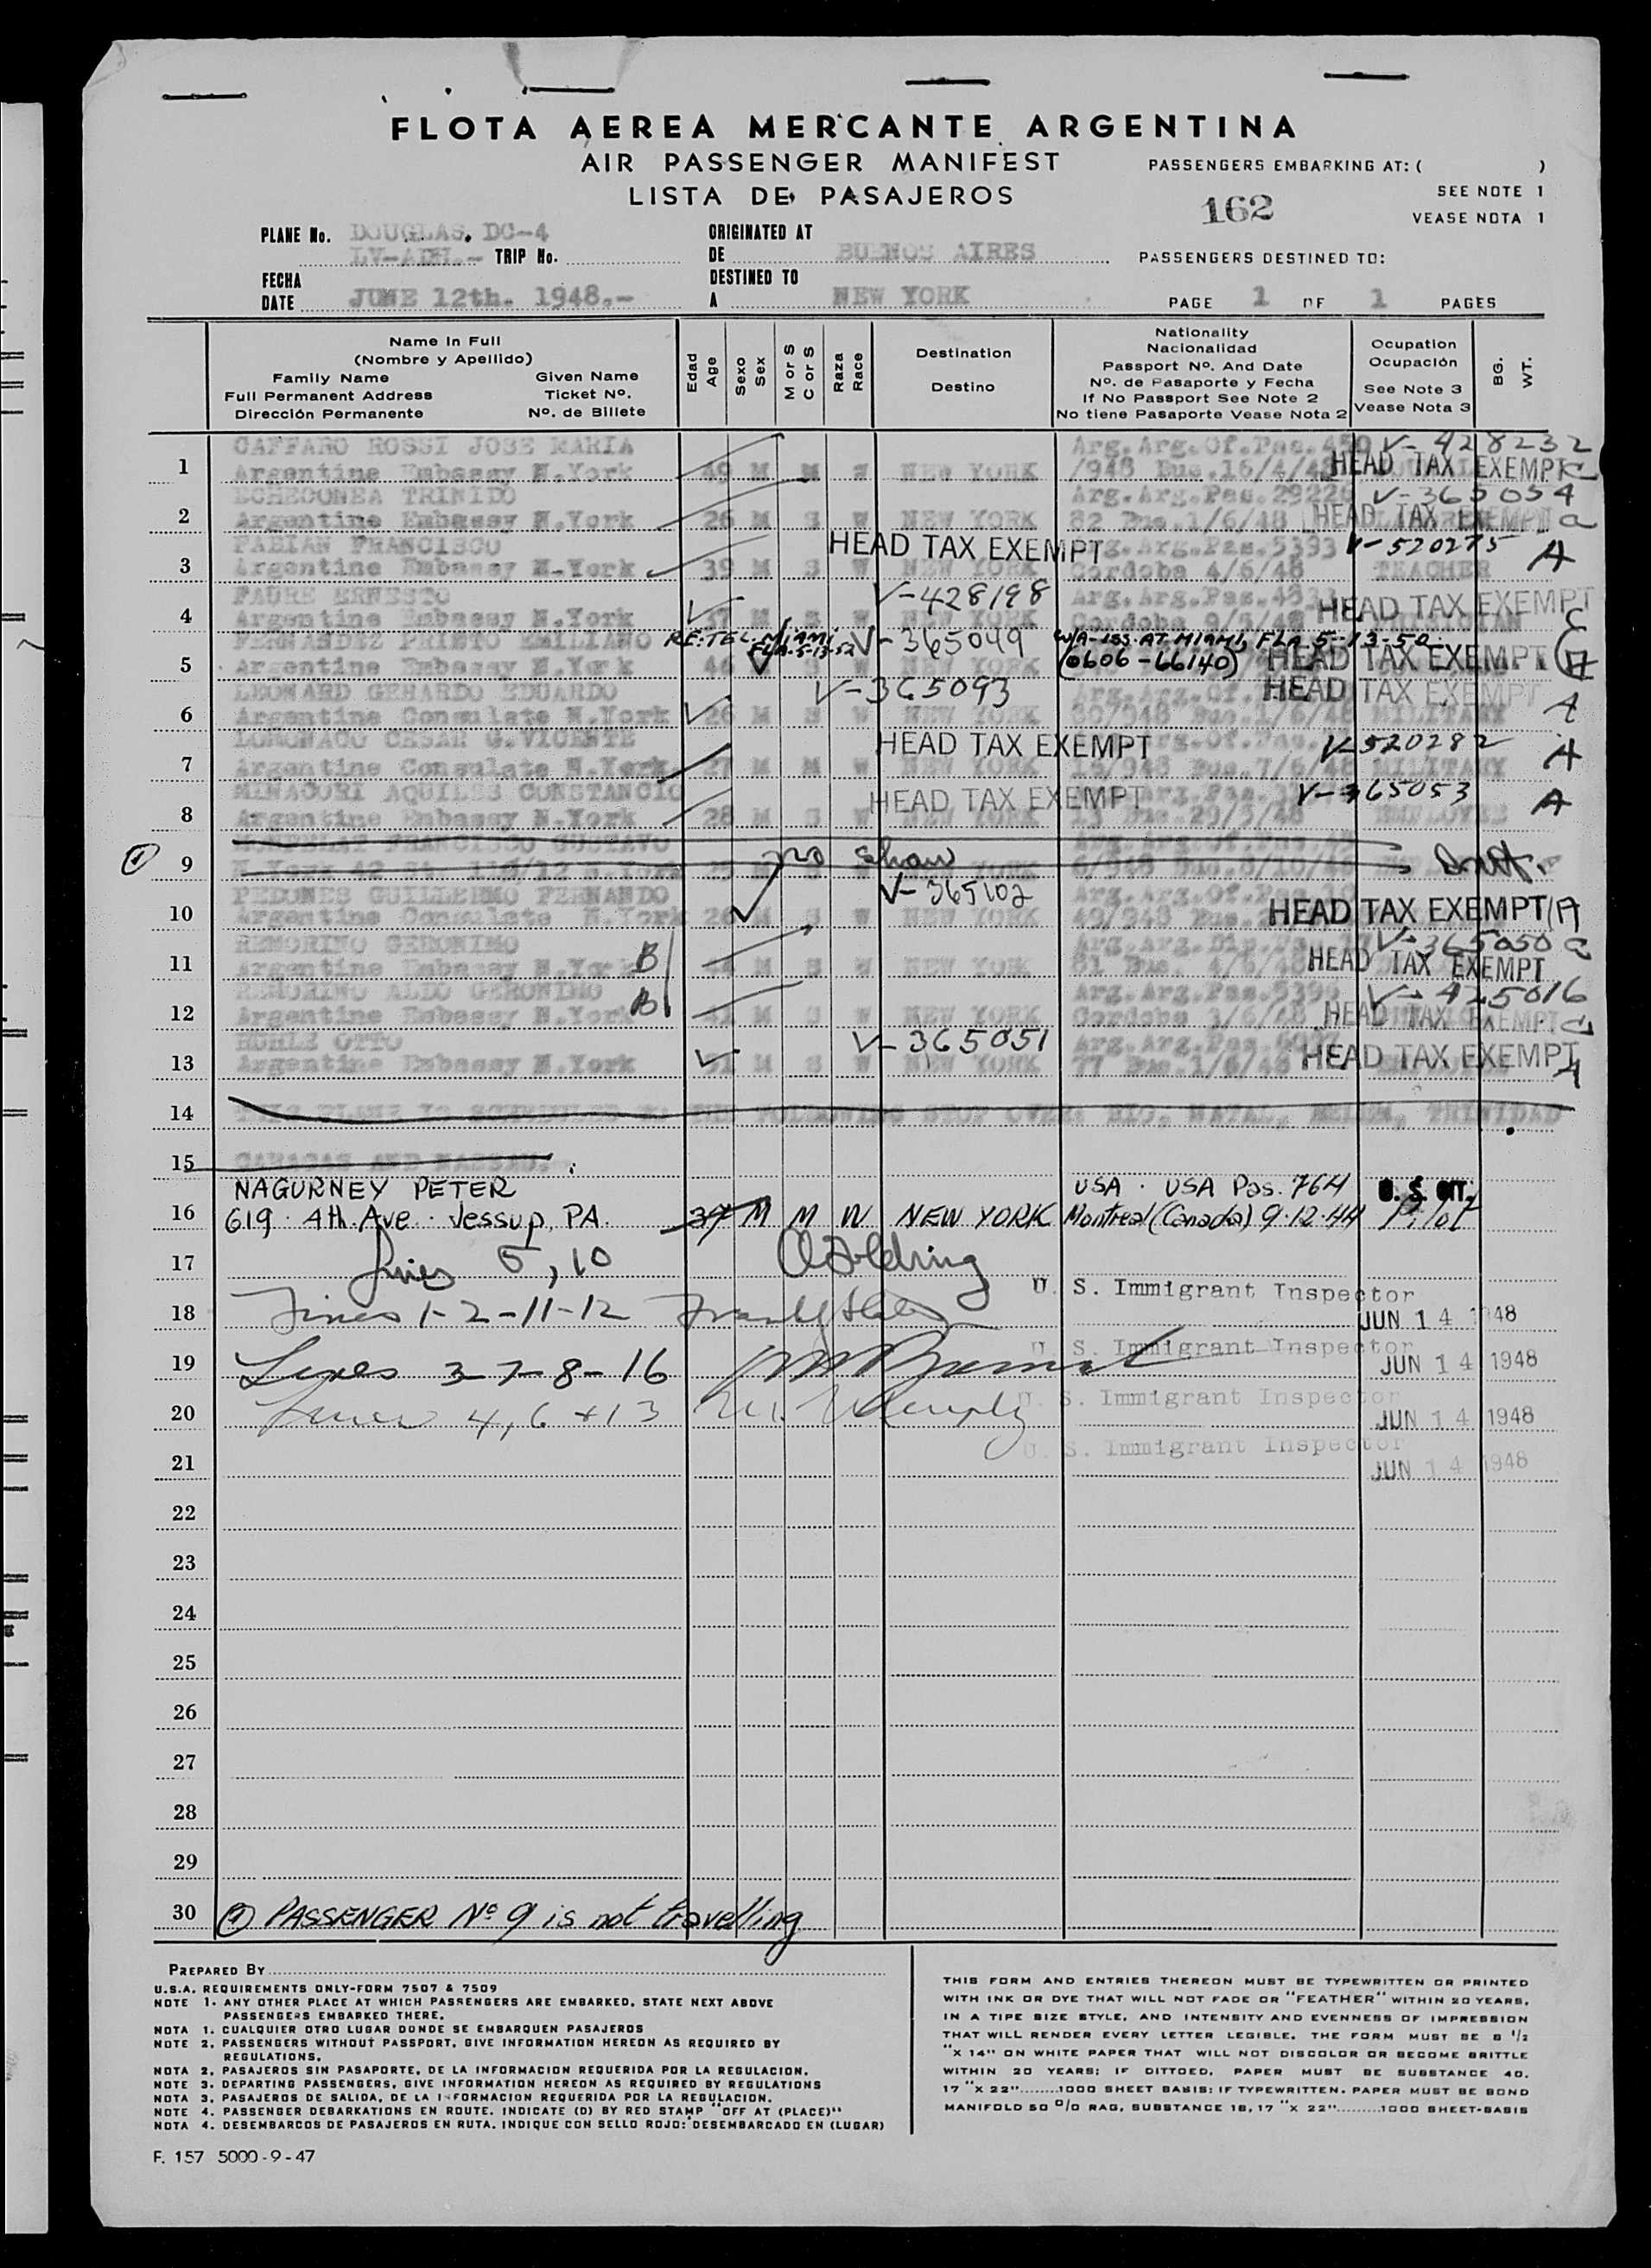 FLOTA AEREA MERCANTE ARGENTINA
AIR PASSENGER MANIFEST
LISTA DE PASAJEROS
PASSENGERS EMBARKING AT: ( )
SEE NOTE 1
162
VEASE NOTA 1
PLANE No. DOUGLAS. DC-4
TRIP No.
ORIGINATED AT
DE BUENOS AIRES
PASSENGERS DESTINED TO:
FECHA
DATE JUNE 12th. 1948.-
DESTINED TO
A NEW YORK
PAGE 1 OF 1 PAGES
Name In Full
(Nombre y Apellido)
Family Name Given Name
Full Permanent Address Ticket Nº.
Dirección Permanente Nº. de Billete
Edad Age
Sexo Sex
M or S C or S
Raza Race
Destination
Destino
Nationality
Nacionalidad
Passport Nº. And Date
Nº. de Pasaporte y Fecha
If No Passport See Note 2
No tiene Pasaporte Vease Nota 2
Ocupation
Ocupación
See Note 3
Vease Nota 3
BG. WT.
CAFFARO ROSSI JOSE MARIA Arg.Arg.Of.Pas.450 V-428232
1 Argentine Embassy N.York 49 M M W NEW YORK /948 Bue.16/4/48 HEAD TAX EXEMPT
ECHECONEA TRINIDO Arg.Arg.Pas.29226 V-365054
2 Argentine Embassy N.York 26 M S W NEW YORK 82 Bue.1/6/48 HEAD TAX EXEMPT a
FABIAN FRANCISCO HEAD TAX EXEMPT Arg.Arg.Pas.5393 V-520275 A
3 Argentine Embassy N-York 39 M S W NEW YORK Cordoba 4/6/48 TEACHER
FAURE ERNESTO V-428198 Arg.Arg.Pas. HEAD TAX EXEMPT
4 Argentine Embassy N.York 37 M S W NEW YORK Cordoba
FERNANDEZ PRIETO EMILIANO RE:TEL MIAMI FLA. 5-13-52 V-365049 W/A-ISS. AT MIAMI, FLA 5-13-50
5 Argentine Embassy N.York 46 W NEW YORK (0606-66140) HEAD TAX EXEMPT
LEONARD GERARDO EDUARDO V-365093 HEAD TAX EXEMPT
6 Argentine Consulate N.York 26 M S W NEW YORK 80/948 Bue.1/6/48 MILITARY A
LOMONACO CESAR G.VICENTE HEAD TAX EXEMPT V-520282 A
7 Argentine Consulate N.York 27 M M W NEW YORK 18/948 Bue.7/6/48 MILITARY
MINACORI AQUILES CONSTANCIO HEAD TAX EXEMPT V-365053 A
8 Argentine Embassy N.York 28 M S W NEW YORK 13 Bue.29/5/48 EMPLOYEE
FRANCISCO GUSTAVO
9 N.York 42 St. /12 N.York no show
PEDONES GUILLERMO FERNANDO V-365102
10 Argentine Consulate N.York 26 M S W NEW YORK 49/948 Bue. HEAD TAX EXEMPT A
REMORINO GERONIMO B V-365050 a
11 Argentine Embassy N.York M S W NEW YORK 81 Bue. 4/6/48 HEAD TAX EXEMPT
REMORINO ALDO GERONIMO B Arg.Arg.Pas.5399 V-425016
12 Argentine Embassy N.York M S W NEW YORK Cordoba 3/6/48 HEAD TAX EXEMPT
OTTO V-365051 Arg.Arg.Pas.
13 Argentine Embassy N.York M S W NEW YORK 77 Bue.1/6/48 HEAD TAX EXEMPT A
14 THIS PLANE IS SCHEDULED THE FOLLOWING STOP OVER: RIO, NATAL, BELEM, TRINIDAD
15 CARACAS AND NASSAU.
NAGURNEY PETER USA . USA Pas. 764 U. S. CIT.
16 619 . 4th. Ave . Jessup, PA. 37 M M W NEW YORK Montreal (Canada) 9.12.44 Pilot
17 Lines 5, 10
U. S. Immigrant Inspector
18 Lines 1-2-11-12 JUN 14 1948
U. S. Immigrant Inspector
19 Lines 3-7-8-16 JUN 14 1948
U. S. Immigrant Inspector
20 Lines 4, 6 + 13 JUN 14 1948
U. S. Immigrant Inspector
21 JUN 14 1948
22
23
24
25
26
27
28
29
30 (1) PASSENGER Nº 9 is not travelling
PREPARED BY
U.S.A. REQUIREMENTS ONLY-FORM 7507 & 7509
NOTE 1. ANY OTHER PLACE AT WHICH PASSENGERS ARE EMBARKED, STATE NEXT ABOVE
PASSENGERS EMBARKED THERE.
NOTA 1. CUALQUIER OTRO LUGAR DONDE SE EMBARQUEN PASAJEROS
NOTE 2. PASSENGERS WITHOUT PASSPORT, GIVE INFORMATION HEREON AS REQUIRED BY
REGULATIONS.
NOTA 2. PASAJEROS SIN PASAPORTE, DE LA INFORMACION REQUERIDA POR LA REGULACION.
NOTE 3. DEPARTING PASSENGERS, GIVE INFORMATION HEREON AS REQUIRED BY REGULATIONS
NOTA 3. PASAJEROS DE SALIDA, DE LA INFORMACION REQUERIDA POR LA REGULACION.
NOTE 4. PASSENGER DEBARKATIONS EN ROUTE. INDICATE (D) BY RED STAMP "OFF AT (PLACE)"
NOTA 4. DESEMBARCOS DE PASAJEROS EN RUTA. INDIQUE CON SELLO ROJO: "DESEMBARCADO EN (LUGAR)
THIS FORM AND ENTRIES THEREON MUST BE TYPEWRITTEN OR PRINTED
WITH INK OR DYE THAT WILL NOT FADE OR "FEATHER" WITHIN 20 YEARS,
IN A TIPE SIZE STYLE, AND INTENSITY AND EVENNESS OF IMPRESSION
THAT WILL RENDER EVERY LETTER LEGIBLE. THE FORM MUST BE 8 1/2
"X 14" ON WHITE PAPER THAT WILL NOT DISCOLOR OR BECOME BRITTLE
WITHIN 20 YEARS; IF DITTOED, PAPER MUST BE SUBSTANCE 40.
17 "X 22"........1000 SHEET BASIS; IF TYPEWRITTEN. PAPER MUST BE BOND
MANIFOLD 50 0/0 RAG, SUBSTANCE 18, 17 "X 22"........1000 SHEET-BASIS
F. 157 5000-9-47